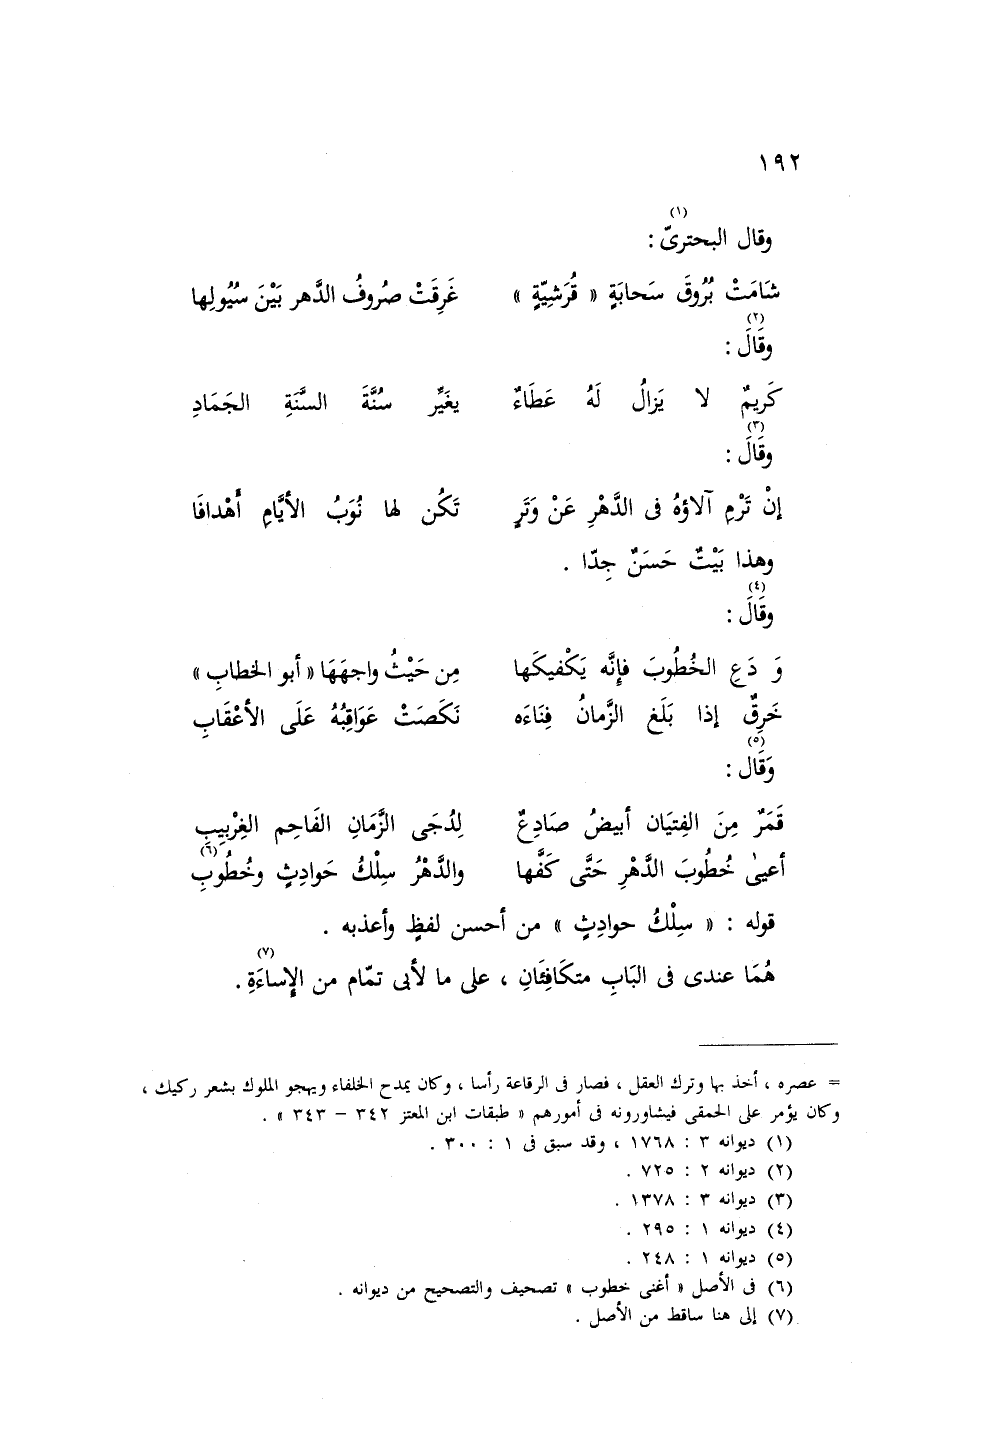 ١٩٢
(١)
وقال البحترىّ :
شَامَتْ بُرُوقَ سَحابَةٍ « قُرَشِيّةٍ » غَرِقَتْ صُروفُ الدَّهر بَيْنَ سُيُولِها
(٢)
وقَالَ :
كَريمٌ لا يَزالُ لَهُ عَطَاءٌ يغَيِّر سُنَّةَ السَّنَةِ الجَمَادِ
(٣)
وقَالَ :
إنْ تَرْمِ آلاؤهُ فى الدَّهْرِ عَنْ وَتَرٍ تَكُن لها نُوَبُ الأيَّامِ أَهْدافَا
وهذا بَيْتٌ حَسَنٌ جِدّا .
(٤)
وقَالَ :
وَ دَعِ الخُطُوبَ فإنَّه يَكْفيكَها مِن حَيْثُ واجهَهَا « أبو الخطابِ »
خَرِقٌ إذا بَلَغ الزَّمانُ فِنَاءَه نَكَصَتْ عَوَاقِبُهُ عَلَى الأعْقَابِ
(٥)
وَقَال :
قَمَرٌ مِنَ الفِتيَان أبيضُ صَادِعٌ لِدُجَى الزَّمَانِ الفَاحِم الغِرْبِيبِ
أعيىٰ خُطُوبَ الدَّهْرِ حَتَّى كَفَّها والدَّهْرُ سِلْكُ حَوادِثٍ وخُطُوبِ (٦)
قوله : « سِلْكُ حوادِثٍ » من أحسن لفظٍ وأعذبه .
هُمَا عندى فى البَابِ متكَافِئَانِ ، على ما لأبى تمّام من الإساءَةِ (٧) .
= عصره ، أخذ بها وترك العقل ، فصار فى الرقاعة رأسا ، وكان يمدح الخلفاء ويهجو الملوك بشعر ركيك ،
وكان يؤمر على الحمقى فيشاورونه فى أمورهم « طبقات ابن المعتز ٣٤٢ – ٣٤٣ » .
(١) ديوانه ٣ : ١٧٦٨ ، وقد سبق فى ١ : ٣٠٠ .
(٢) ديوانه ٢ : ٧٢٥ .
(٣) ديوانه ٣ : ١٣٧٨ .
(٤) ديوانه ١ : ٢٩٥ .
(٥) ديوانه ١ : ٢٤٨ .
(٦) فى الأصل « أغنى خطوب » تصحيف والتصحيح من ديوانه .
(٧) إلى هنا ساقط من الأصل .